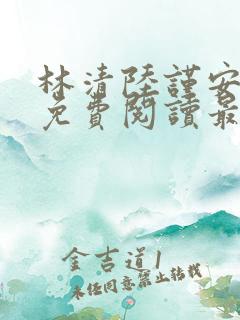 林清陸謹安
免費閱讀最
金吉道1
未經同意禁止轉載